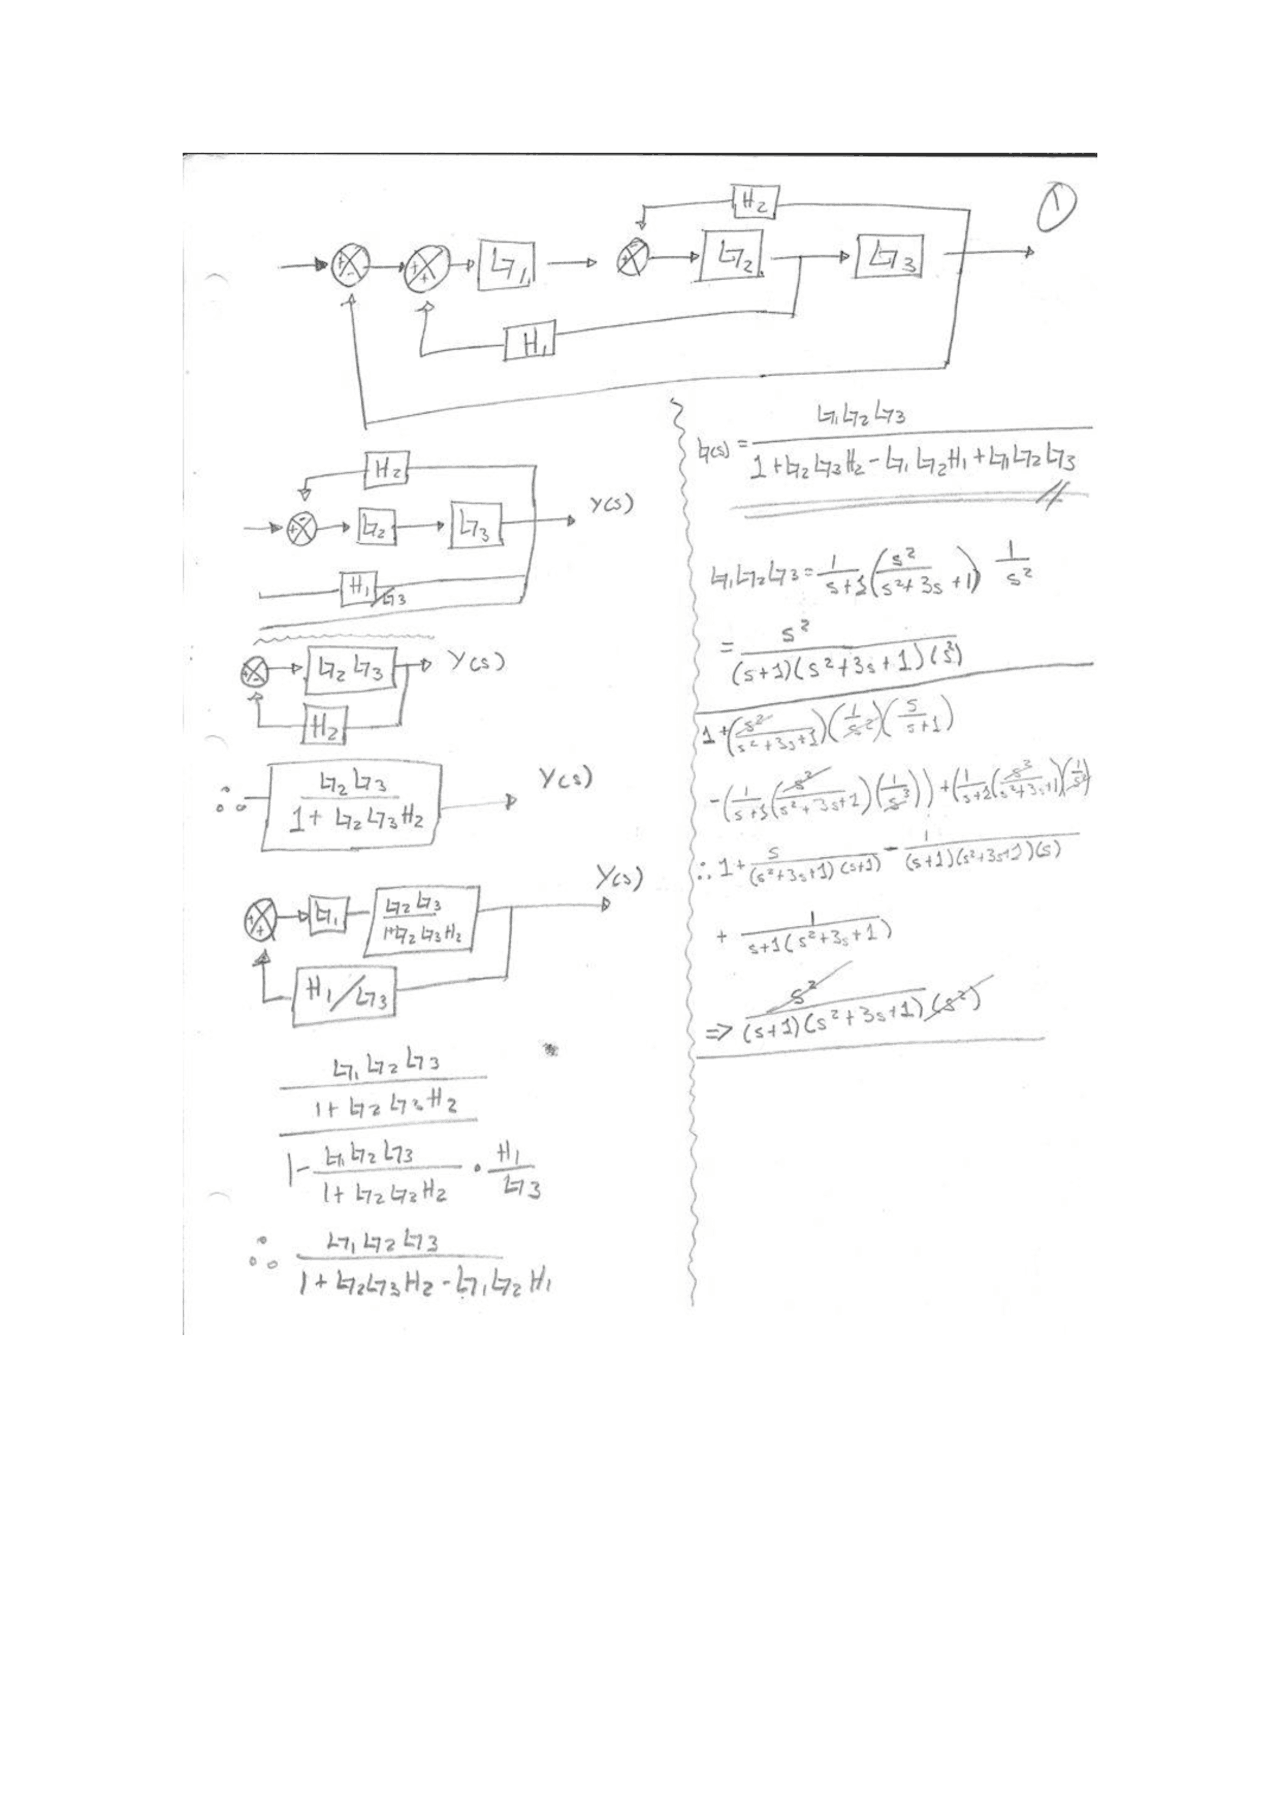 ①
H2
G1
G2
G3
H1
H2
G2
G3
Y(s)
H1/G3
G2 G3
Y(s)
H2
∴ G2 G3 / 1 + G2 G3 H2
Y(s)
Y(s)
G1
G2 G3 / 1+G2 G3 H2
H1/G3
G1 G2 G3
1 + G2 G3 H2
1 - G1 G2 G3 / 1 + G2 G3 H2 · H1 / G3
∴ G1 G2 G3
1 + G2G3 H2 - G1 G2 H1
G(s) = G1 G2 G3 / 1 + G2 G3 H2 - G1 G2 H1 + G1 G2 G3
G1 G2 G3 = 1/s+1 (s²/s²+3s+1) 1/s²
= s² / (s+1)(s²+3s+1)(s²)
1 + (s²/s²+3s+1)(1/s²)(s/s+1)
- (1/s+1 (s²/s²+3s+1)(1/s³)) + (1/s+1 (s²/s²+3s+1)(1/s²)
∴ 1 + s/(s²+3s+1)(s+1) - 1/(s+1)(s²+3s+1)(s)
+ 1/s+1(s²+3s+1)
=> s²/(s+1)(s²+3s+1)(s²)